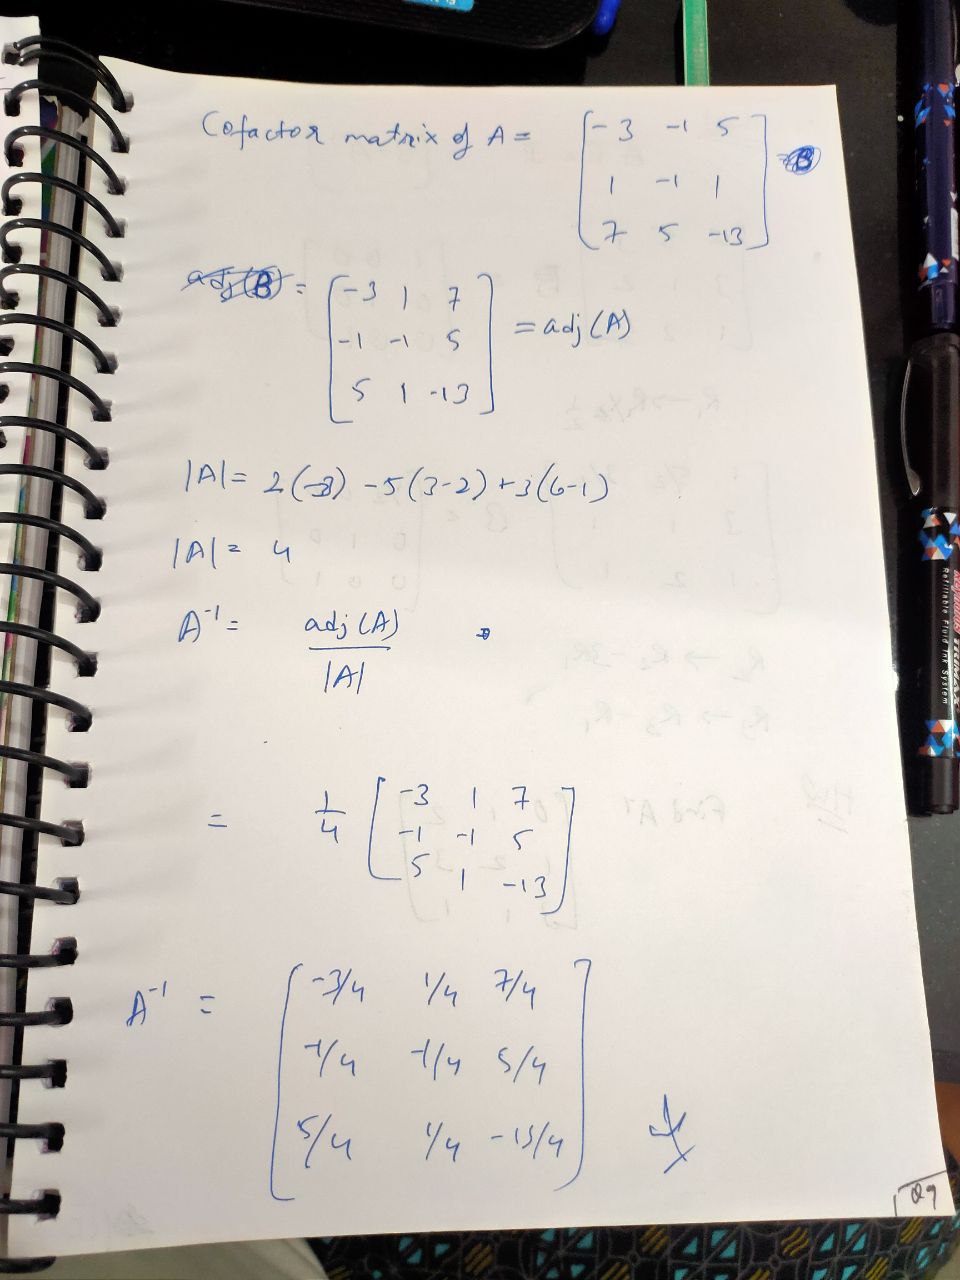 Cofactor matrix of A = [-3 -1 5
1 -1 1
7 5 -13]
adj(B) = [-3 1 7
-1 -1 5
5 1 -13] = adj(A)
|A| = 2(-3) -5(3-2) +3(6-1)
|A| = 4
A⁻¹ = adj(A)
|A|
= 1/4 [-3 1 7
-1 -1 5
5 1 -13]
A⁻¹ = [-3/4 1/4 7/4
-1/4 -1/4 5/4
5/4 1/4 -13/4]
Reynolds TRIMAX
Refillable Fluid Ink System